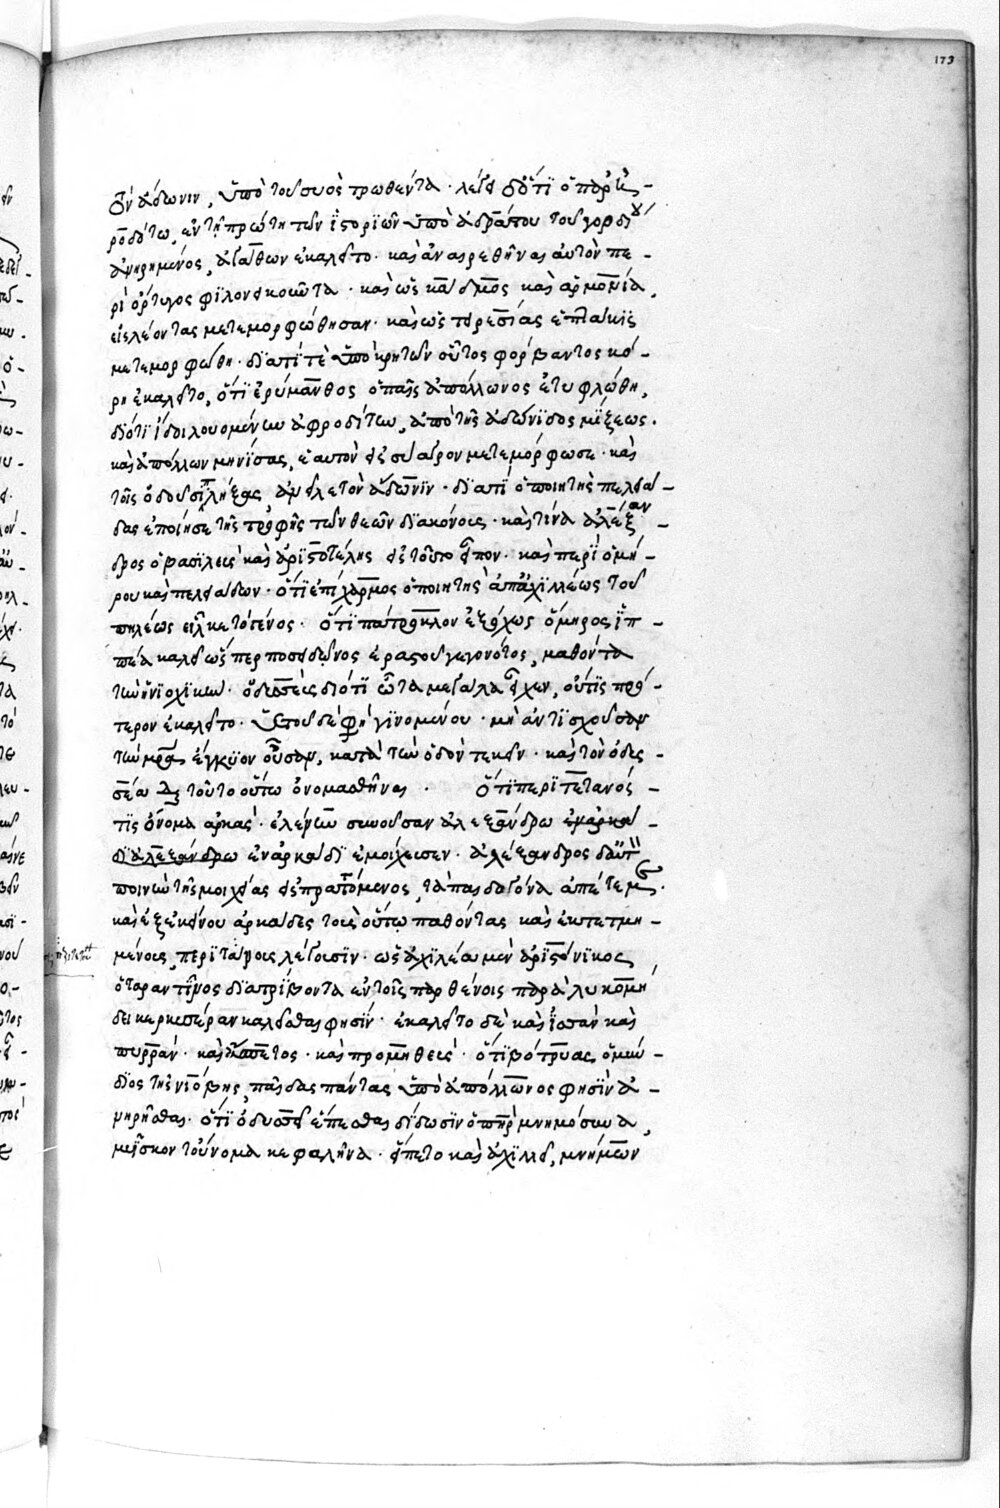 173
τὸν ἄδωνιν, ὑπὸ τοῦ συὸς τρωθέντα· λέγει δὲ ὅτι ὁ παρ' ἡ-
ροδότω, ἐν τῇ πρώτη τῶν ἱστοριῶν ὑπὸ ἀδράστου τοῦ γορδίου
ἀνηρημένος, ἀγάθων ἐκαλεῖτο· καὶ ἀναιρεθῆναι αὐτὸν πε-
ρὶ ὄρτυγος φιλονεικοῦντα· καὶ ὡς κάδμος καὶ ἁρμονία,
εἰς λέοντας μετεμορφώθησαν· καὶ ὡς τειρεσίας ἑπτάκις
μετεμορφώθη· διατί τὲ ὑπὸ κρητῶν οὗτος φορβαντος κό-
ρη ἐκαλεῖτο, ὅτι ἐρύμανθος ὁ παῖς ἀπόλλωνος ἐτυφλώθη,
διότι ἴδοι λουομένην ἀφροδίτην, ἀπὸ τῆς ἀδώνιδος μίξεως.
καὶ ἀπόλλων μηνίσας, ἑαυτὸν εἰς σύαγρον μετεμόρφωσε· καὶ
τοῖς ὀδοῦσι πλήξας ἀνεῖλε τὸν ἄδωνιν· διατί ὁ ποιητὴς πελειά-
δας ἐποίησε τῆς τροφῆς τῶν θεῶν διακόνους· καὶ τίνα ἀλέξαν-
δρος ὁ βασιλεὺς καὶ ἀριστοτέλης εἰς τοῦτο εἶπον· καὶ περὶ ὁμή-
ρου καὶ πελειάδων· ὅτι ἐπίχαρμος ὁ ποιητὴς ἀπ' ἀχιλλέως τοῦ
πηλέως εἷλκε τὸ γένος· ὅτι πάτροκλον ἐξόχως ὅμηρος ἱπ-
πέα καλεῖ ὥσπερ ποσειδῶνος ἐραστοῦ γεγονότος, μαθόντα
τὴν ἡνιοχικήν· ὀδυσσεὺς διότι ὦτα μεγάλα εἶχεν, οὔτις πρό-
τερον ἐκαλεῖτο· ὑετοῦ δέ φησι γινομένου· μὴ ἀντισχοῦσαν
τὴν μητέρα ἔγκυον οὖσαν, κατὰ τὴν ὁδὸν τεκεῖν· καὶ τὸν ὀδυσ-
σέα διὰ τοῦτο οὕτω ὀνομασθῆναι· ὅτι περίτανός
τις ὄνομα ἀρκάς· ἑλένην συνοῦσαν ἀλεξάνδρω ἐν ἀρκα-
δι ἀλεξάνδρω ἐν ἀρκαδι ἐμοίχευσεν· ἀλέξανδρος δ' αὐτ
ποινὴν τῆς μοιχείας εἰσπραττόμενος, τὰ παιδαγόνα ἀπέτεμε.
καὶ ἐξ ἐκείνου ἀρκάδες τοὺς οὕτω παθόντας καὶ ἐκτετμη-
μένους, περιτάνους λέγουσιν· ὡς ἀχιλέα μὲν ἀριστόνικος
ὁ ταραντῖνος διατρίβοντα ἐν τοῖς παρθένοις παρὰ λυκομή
δει κερκυσέραν καλεῖσθαι φησίν· ἐκαλεῖτο δὲ καὶ ἴσσαν καὶ
πυρράν· καὶ ἄσπετος· καὶ προμηθεύς· ὅτι βότρυας ὁ μύν-
διος τῆς νιόβης, παῖδας πάντας ὑπὸ ἀπόλλωνος φησὶν ἀ-
νηρῆσθαι· ὅτι ὀδυσσεῖ ἕπεσθαι δίδωσιν ὁ πατὴρ μνήμοσυνα,
μυΐσκον τοὔνομα κεφαλῆνα· εἵπετο καὶ ἀχιλλεῖ, μνήμων